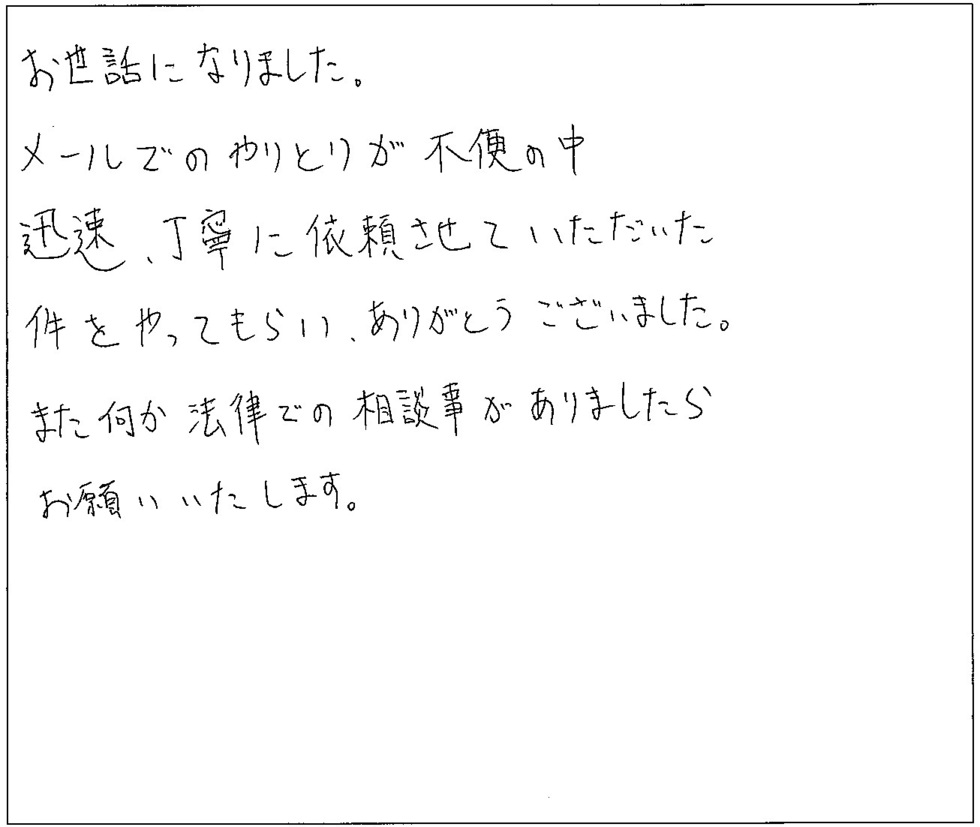 お世話になりました。
メールでのやりとりが不便の中
迅速、丁寧に依頼させていただいた
件をやってもらい、ありがとうございました。
また何か法律での相談事がありましたら
お願いいたします。